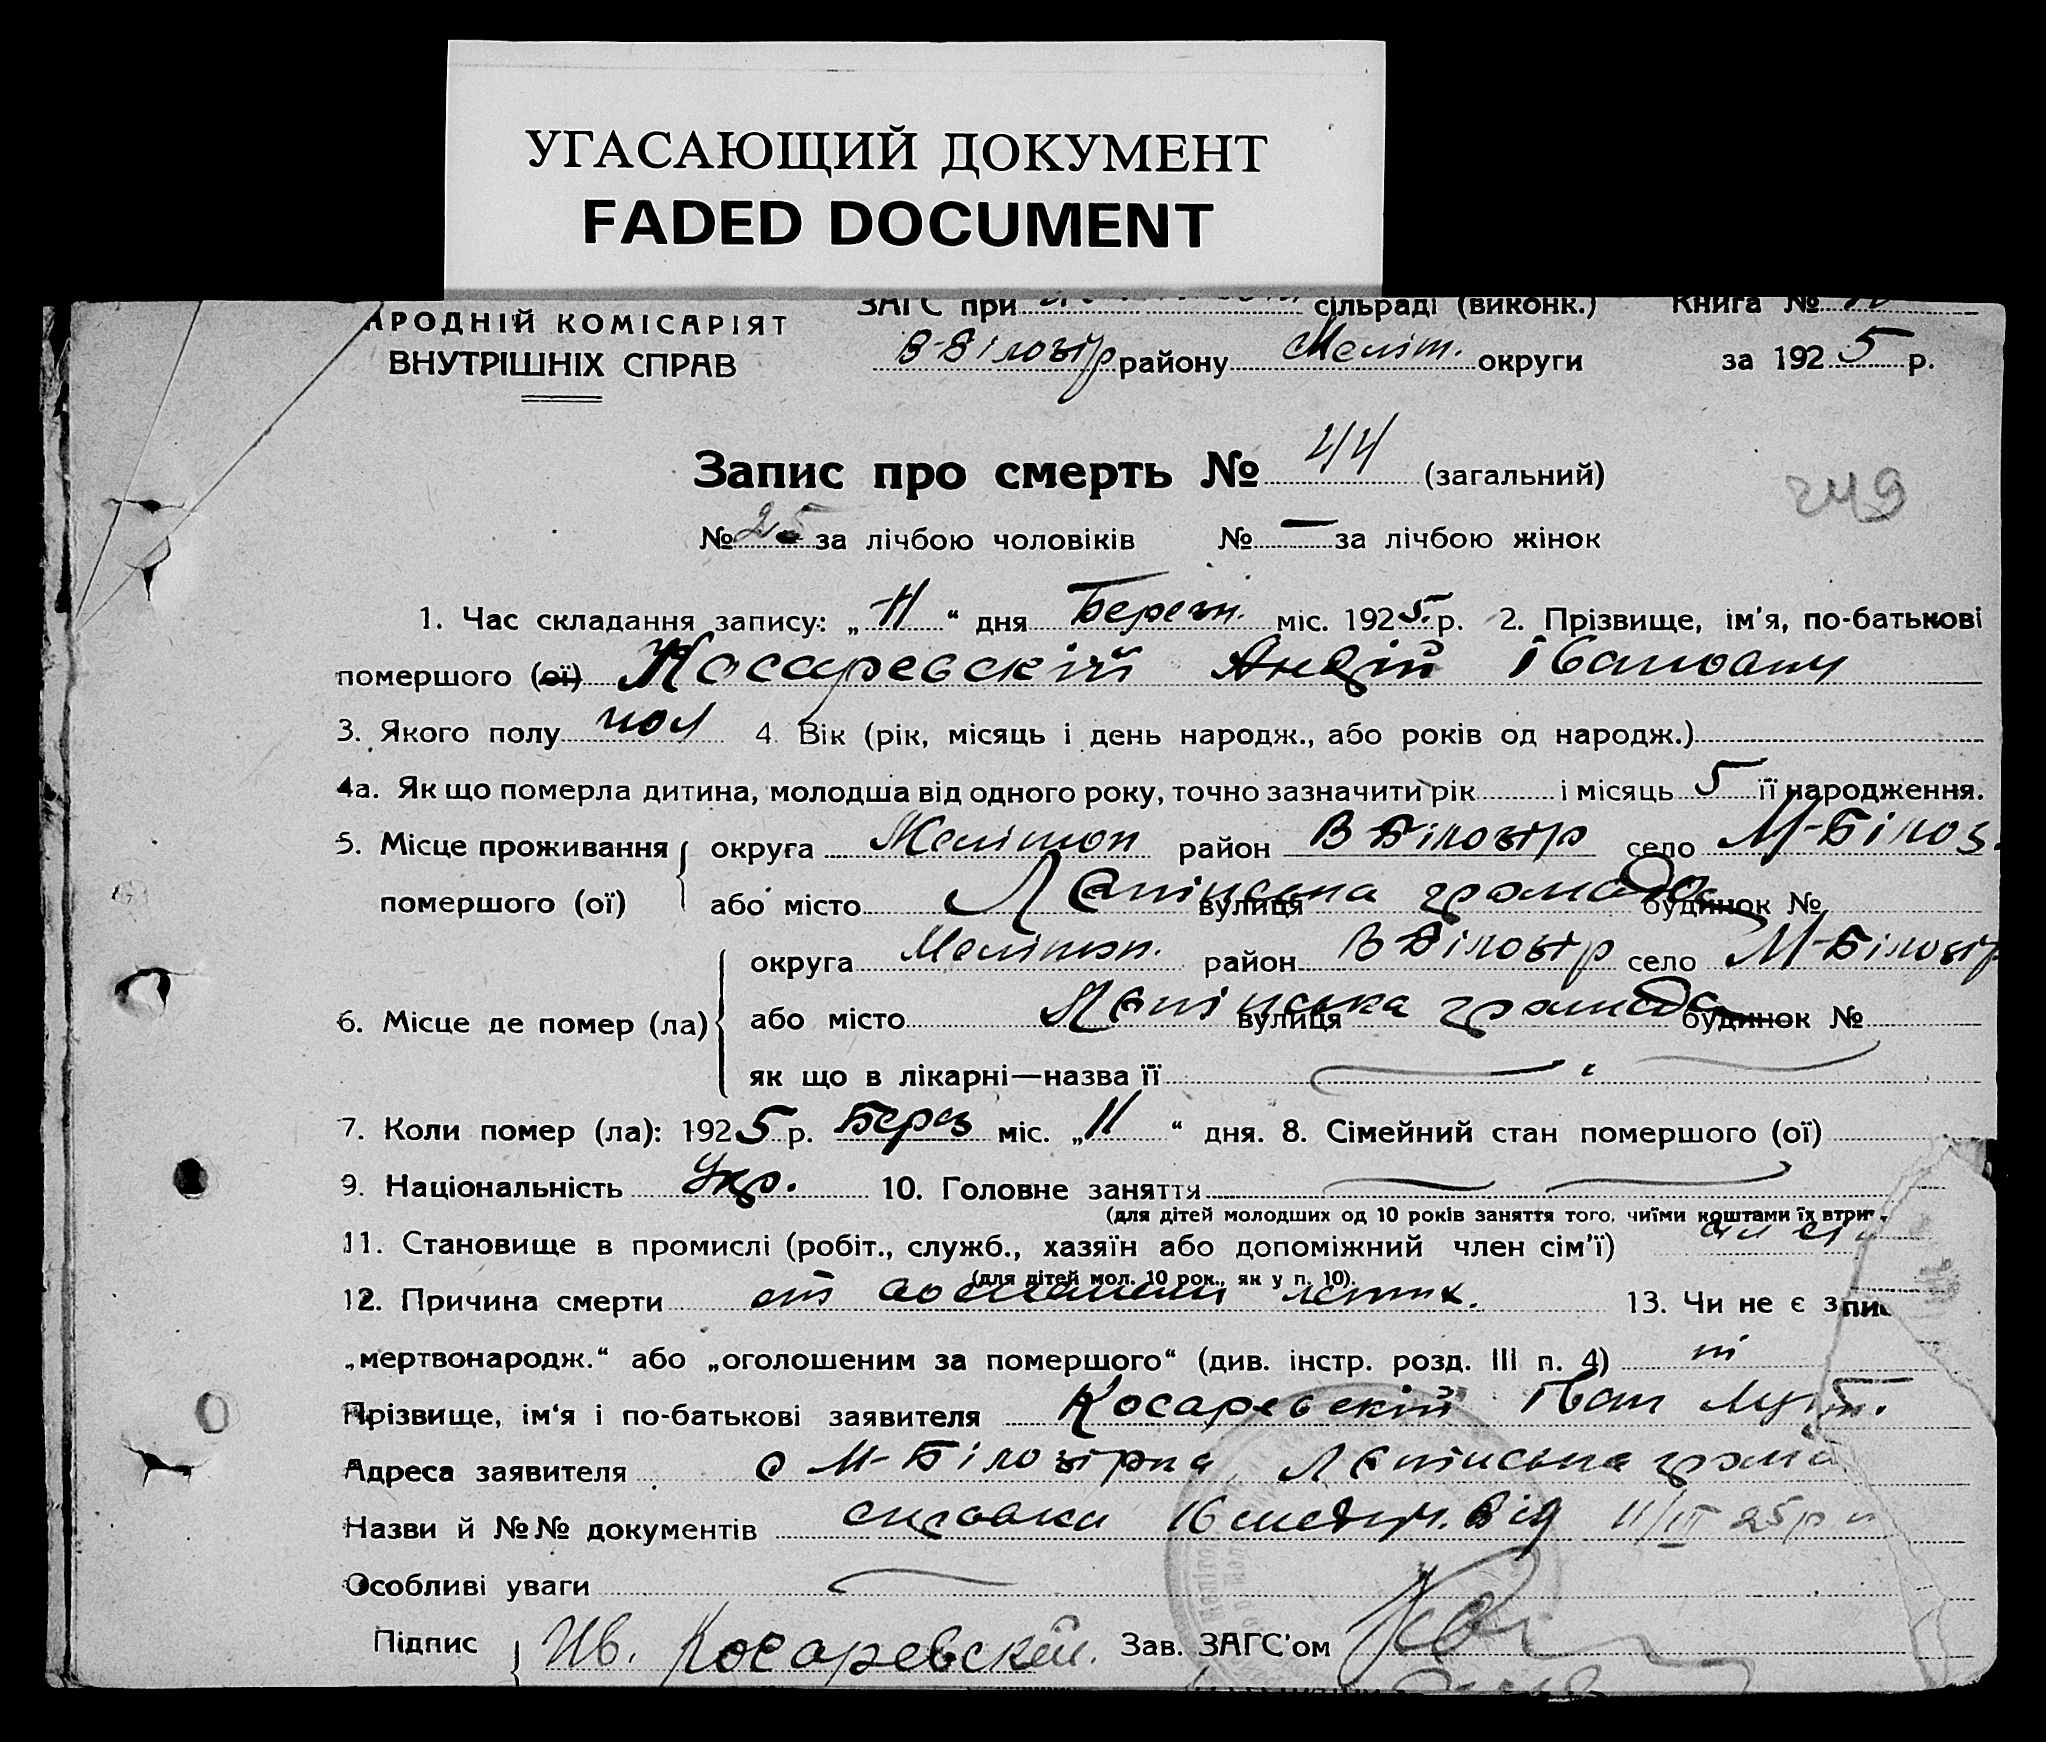 УГАСАЮЩИЙ ДОКУМЕНТ
FADED DOCUMENT
АРОДНІЙ КОМІСАРІЯТ
ВНУТРІШНІХ СПРАВ
ЗАГС при сільраді (виконк.) Книга №
В-Білозір району Меліт. округи за 1925 р.
Запис про смерть № 44 (загальний)
249
№ 25 за лічбою чоловіків № — за лічбою жінок
1. Час складання запису: „11“ дня міс. 1925 р. 2. Прізвище, ім'я, по-батькові
помершого (ої) Косаревскій Андрій Іванович
3. Якого полу чол 4. Вік (рік, місяць і день народж., або років од народж.)
4а. Як що померла дитина, молодша від одного року, точно зазначити рік і місяць 5 її народження.
5. Місце проживання округа Мелітоп район В-Білозір село М-Білоз.
помершого (ої) або місто Лепінська громада вулиця будинок №
округа Мелітоп. район В-Білозір село М-Білозір
6. Місце де помер (ла) або місто Лепінська громада вулиця будинок №
як що в лікарні—назва її
7. Коли помер (ла): 1925 р. Берез міс. „11“ дня. 8. Сімейний стан помершого (ої)
9. Національність Укр. 10. Головне заняття
(для дітей молодших од 10 років заняття того, чиїми коштами їх втри
11. Становище в промислі (робіт., служб., хазяїн або допоміжний член сім'ї)
(для дітей мол. 10 рок., як у п. 10).
12. Причина смерти от 13. Чи не є з
„мертвонародж.“ або „оголошеним за помершого“ (див. інстр. розд. III п. 4)
Прізвище, ім'я і по-батькові заявителя Косаревскій Іван
Адреса заявителя с М-Білозірка Лепінська грома
Назви й №№ документів від 11/III 25 р
Особливі уваги
Підпис Ив. Косаревскій. Зав. ЗАГС'ом